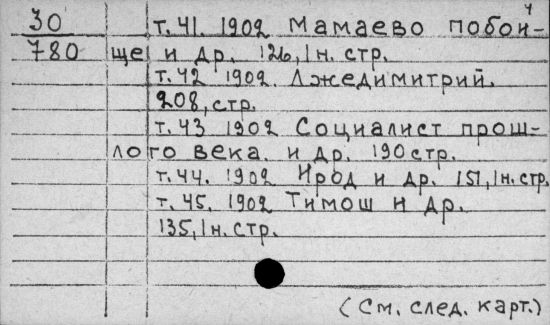 4
30 т. 41. 1902 Мамаево побои-
780 ще и др. 126, 1 н. стр.
т. 42 1902. Лжедимитрий.
208, стр.
т. 43 1902 Социалист прош-
лого века. и др. 190 стр.
т. 44. 1902 Ирод и др. 151, 1 н. стр.
т. 45. 1902 Тимош и др.
135, 1 н. стр.
(См. след. карт.)